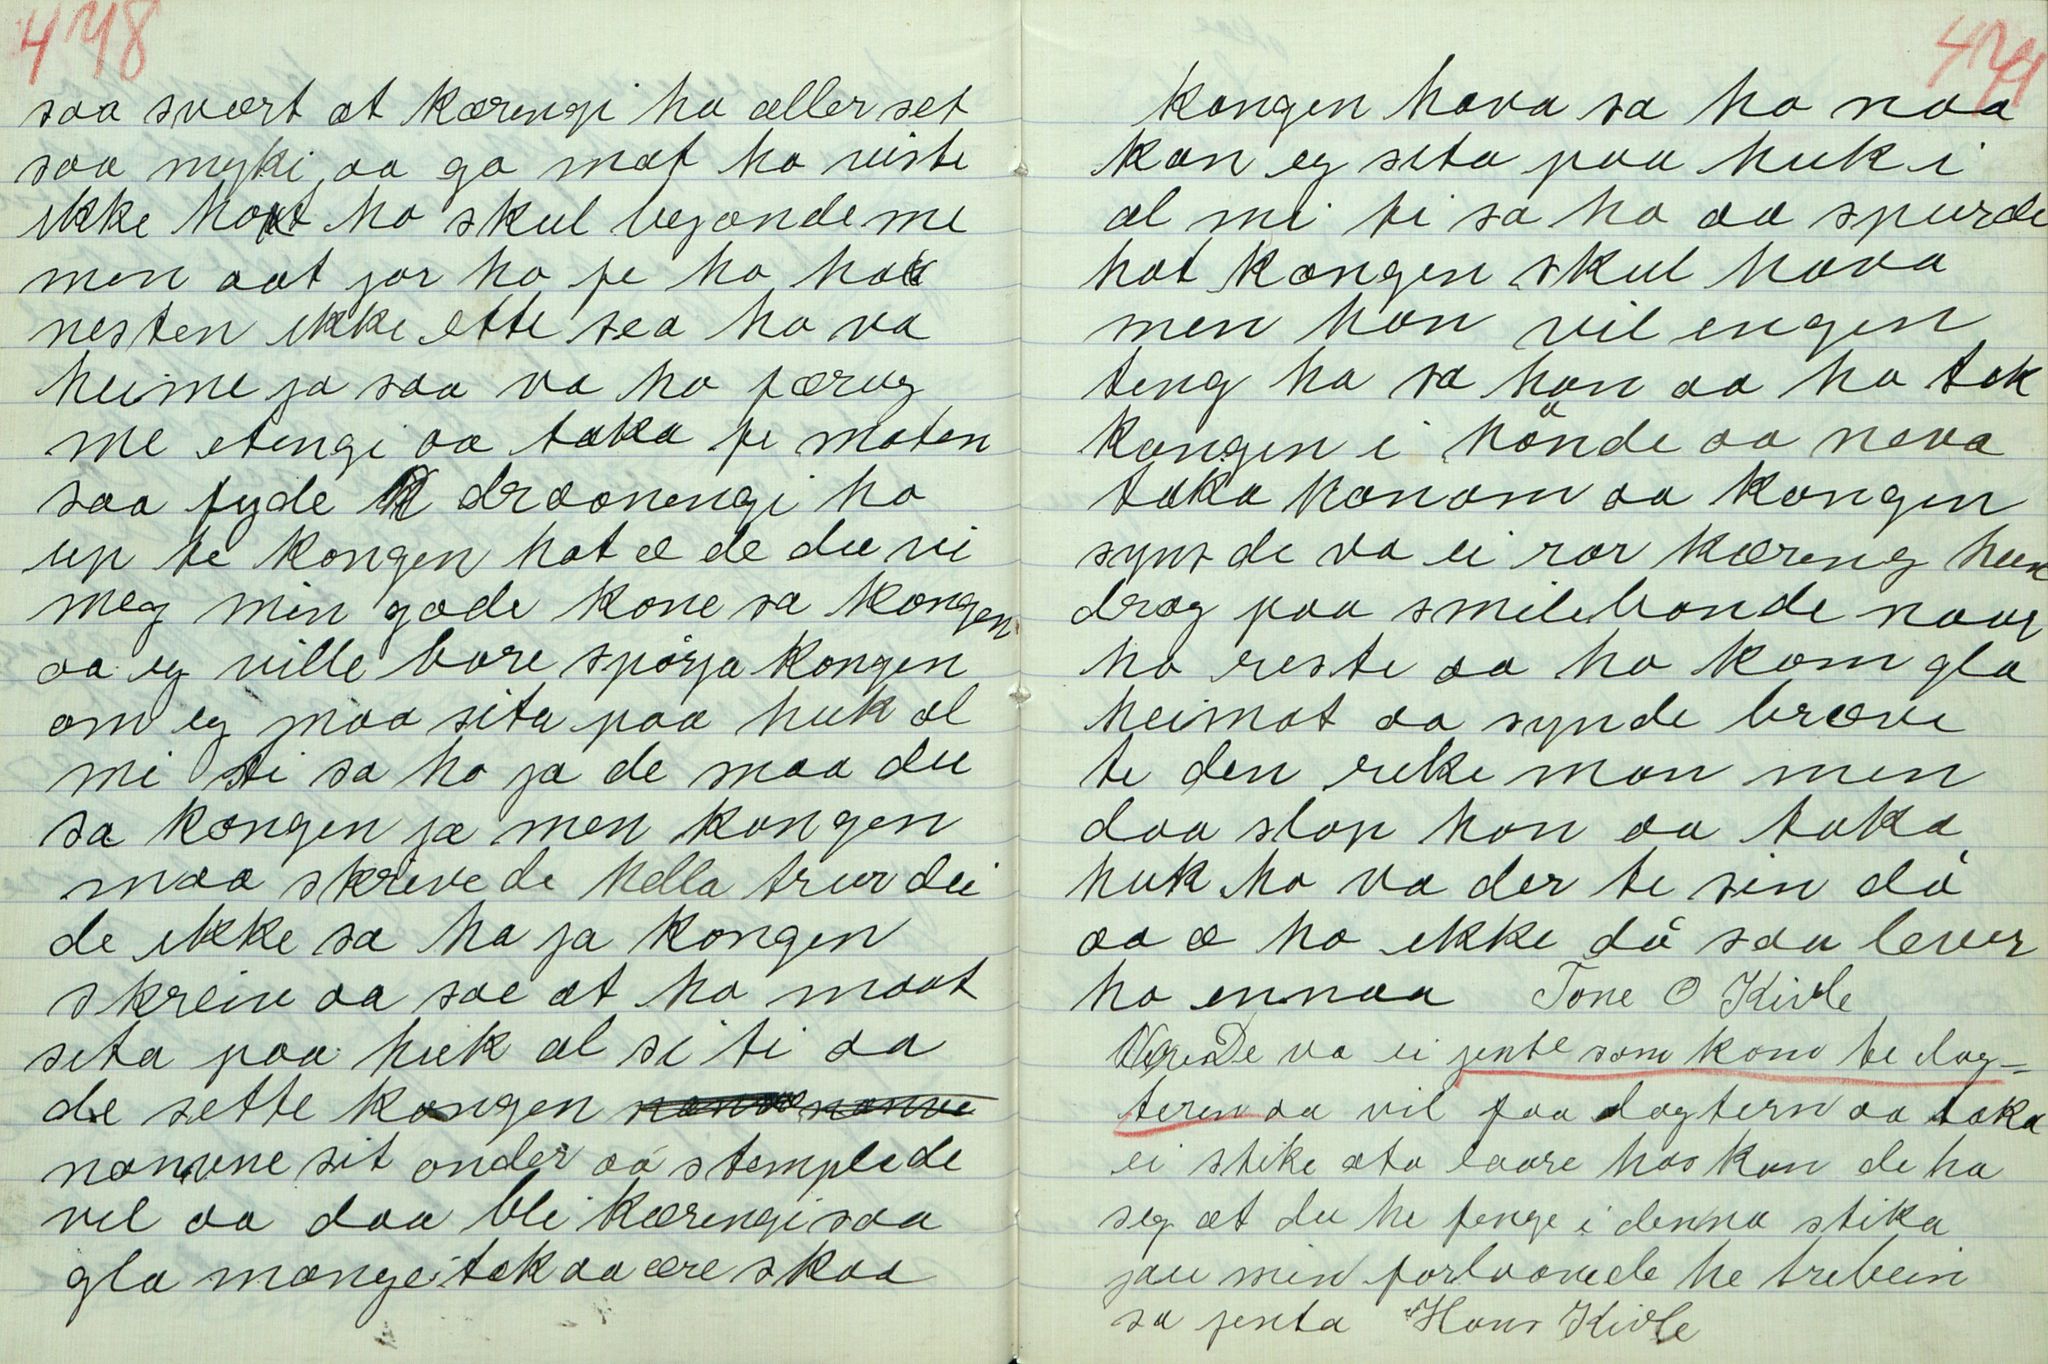 478
saa svært at kærengi ho aller set
saa myki aa ga mat ho viste
ikke hot ho skul begonde me
men aat jor ho fe ho hak
nesten ikke ette sea ho va
heime ja saa va ho færug
me etengi aa taka fe maten
saa fyde draanengi ho
up te kongen hot æ de du vi
meg min gode kone sa kongen
aa eg ville bare spörja kongen
om eg maa sita paa huk al
mi ti sa ho ja de maa du
sa kongen ja men kongen
maa skrive de hella trur dei
de ikke sa ho ja kongen
skreiv aa sae at ho maat
sita paa huk al si ti aa
de sette kongen
namne sit onder aa stemplede
vel aa daa blei kærengi saa
gla mange tak aa ære skaa
479
kongen hava sa ho naa
kan eg sita paa huk i
al mi ti sa ho aa spurde
hot kongen skul hava
men han vil engen
teng ha sa han aa ho tok
kongen i hönde aa neva
taka honom aa kongen
syns de va ei rar kæreng hun
drog paa smilebonde naar
ho reste aa ho kom gla
heimat aa synde bræve
te den reke man men
daa slap han aa taka
huk ho va der te sin dö
aa æ ho ikke dö saa lever
ho ennaa Tone O Kivle
De va ei jente som kom te dag-
teren aa vil faa dagtern aa taka
ei stike ata laare hos kan de ha
seg at du he fenge i denna stika
jau min forlaavede he trebein
sa jenta Hans Kivle